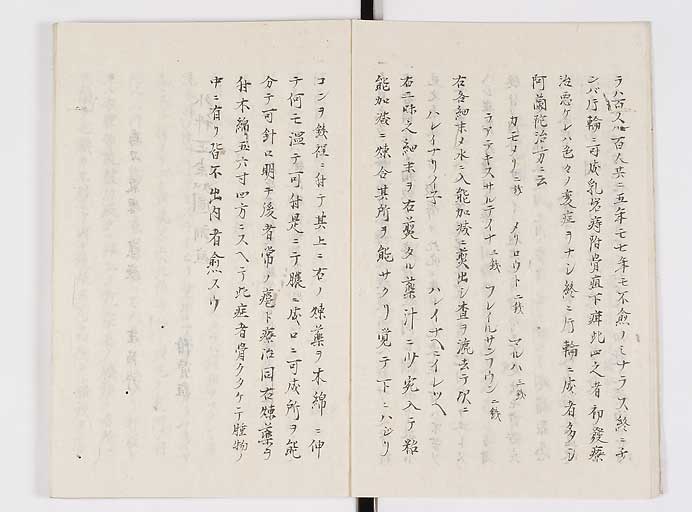 ラハ百人ハ百人共ニ五年モ七年モ不愈ノミナラス終ニ子
ンバ片輪ニ可成乳岩痔附骨疽下疳此四之者初發療
治悪ケレハ色々ノ変症ヲナシ終ニ片輪ニ成者多シ
阿蘭陀治方ニ云
カモメリ 二銭 メリロウト 二銭 マルハ 二銭
ラアテキスサルテイナ 二銭 フレイルサンフウシ 二銭
右各細末メ水ニ入能加减ニ煎出シ査ヲ漉去テ次ニ
ハレイナリノイ子 ハレイナヘニイレツヘ
右二味之細末ヲ右煎タル薬汁ニ少宛入テ粘
能加减ニ煉合其所ヲ能サクリ覚テ下ニハシリ
コンヲ鉄程ニ付テ其上ニ右ノ煉薬ヲ木綿ニ伸
テ何モ温テ可付是ニテ膿ニ成ロニ可成所ヲ能
分テ可針口明テ後者常ノ瘡ト療治同右煉薬ヲ
付木綿五六寸四方ニスヘテ此症者骨クタケテ腫物ノ
中ニ有リ皆不出内者愈スウ